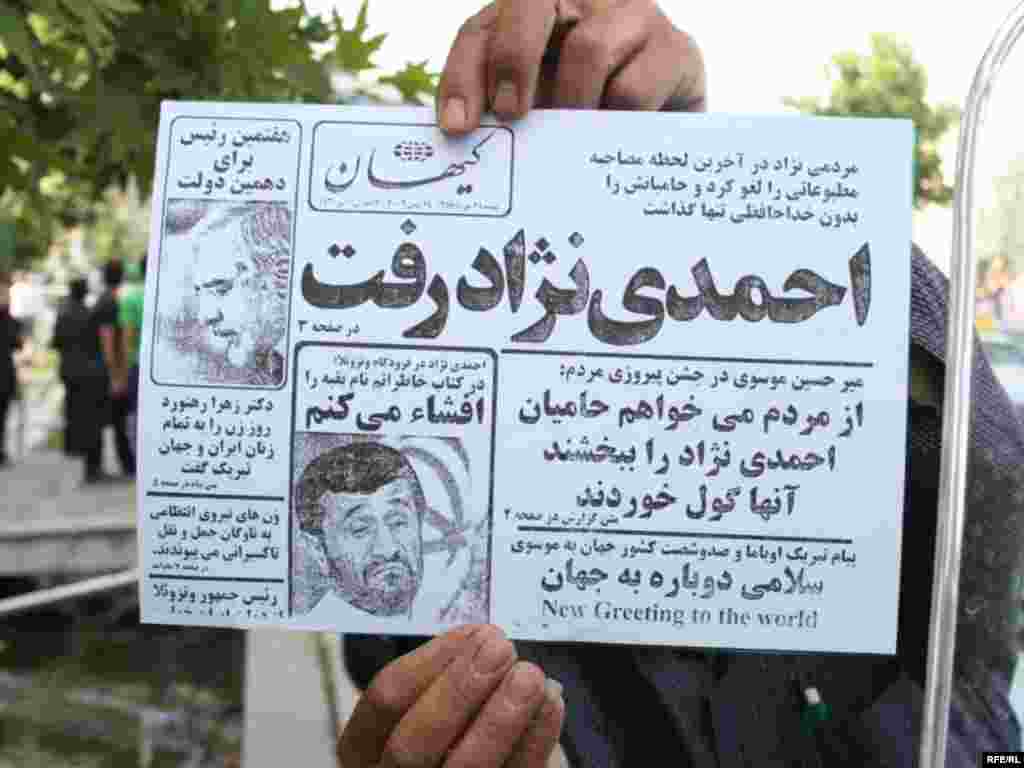 مردمی نژاد در آخرین لحظه مصاحبه
مطبوعاتی را لغو کرد و حامیانش را
بدون خداحافظی تنها گذاشت
کیهان
احمدی نژاد رفت
در صفحه ۳
هفتمین رئیس
برای
دهمین دولت
میر حسین موسوی در جشن پیروزی مردم:
از مردم می خواهم حامیان
احمدی نژاد را ببخشند
آنها گول خوردند
متن گزارش در صفحه ۲
پیام تبریک اوباما و صدوشصت کشور جهان به موسوی
سلامی دوباره به جهان
New Greeting to the world
احمدی نژاد در فرودگاه ونزوئلا:
در کتاب خاطراتم نام بقیه را
افشاء می کنم
دکتر زهرا رهنورد
روز زن را به تمام
زنان ایران و جهان
تبریک گفت
ون های نیروی انتظامی
به ناوگان حمل و نقل
تاکسیرانی می پیوندند.
رئیس جمهور ونزوئلا
RFE/RL